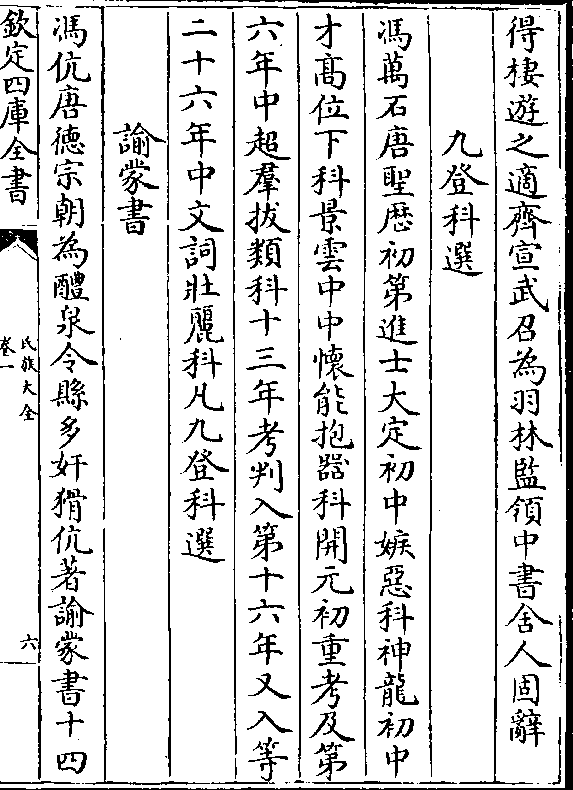 得棲遊之適齊宣武召為羽林監領中書舍人固辭
九登科選
馮萬石唐聖厯初第進士大定初中嫉惡科神龍初中
才髙位下科景雲中中懷能抱器科開元初重考及第
六年中超羣拔類科十三年考判入第十六年又入等
二十六年中文詞壯麗科凡九登科選
諭蒙書
馮伉唐德宗朝為醴泉令縣多奸猾伉著諭蒙書十四
欽定四庫全書
氏族大全
卷一
六